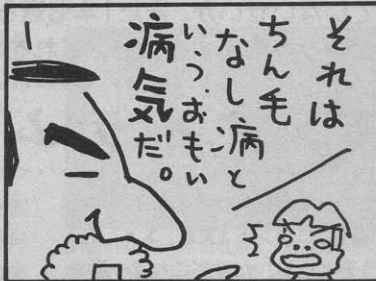 それは
ちん毛
なし病と
いう、おもい
病気だ。